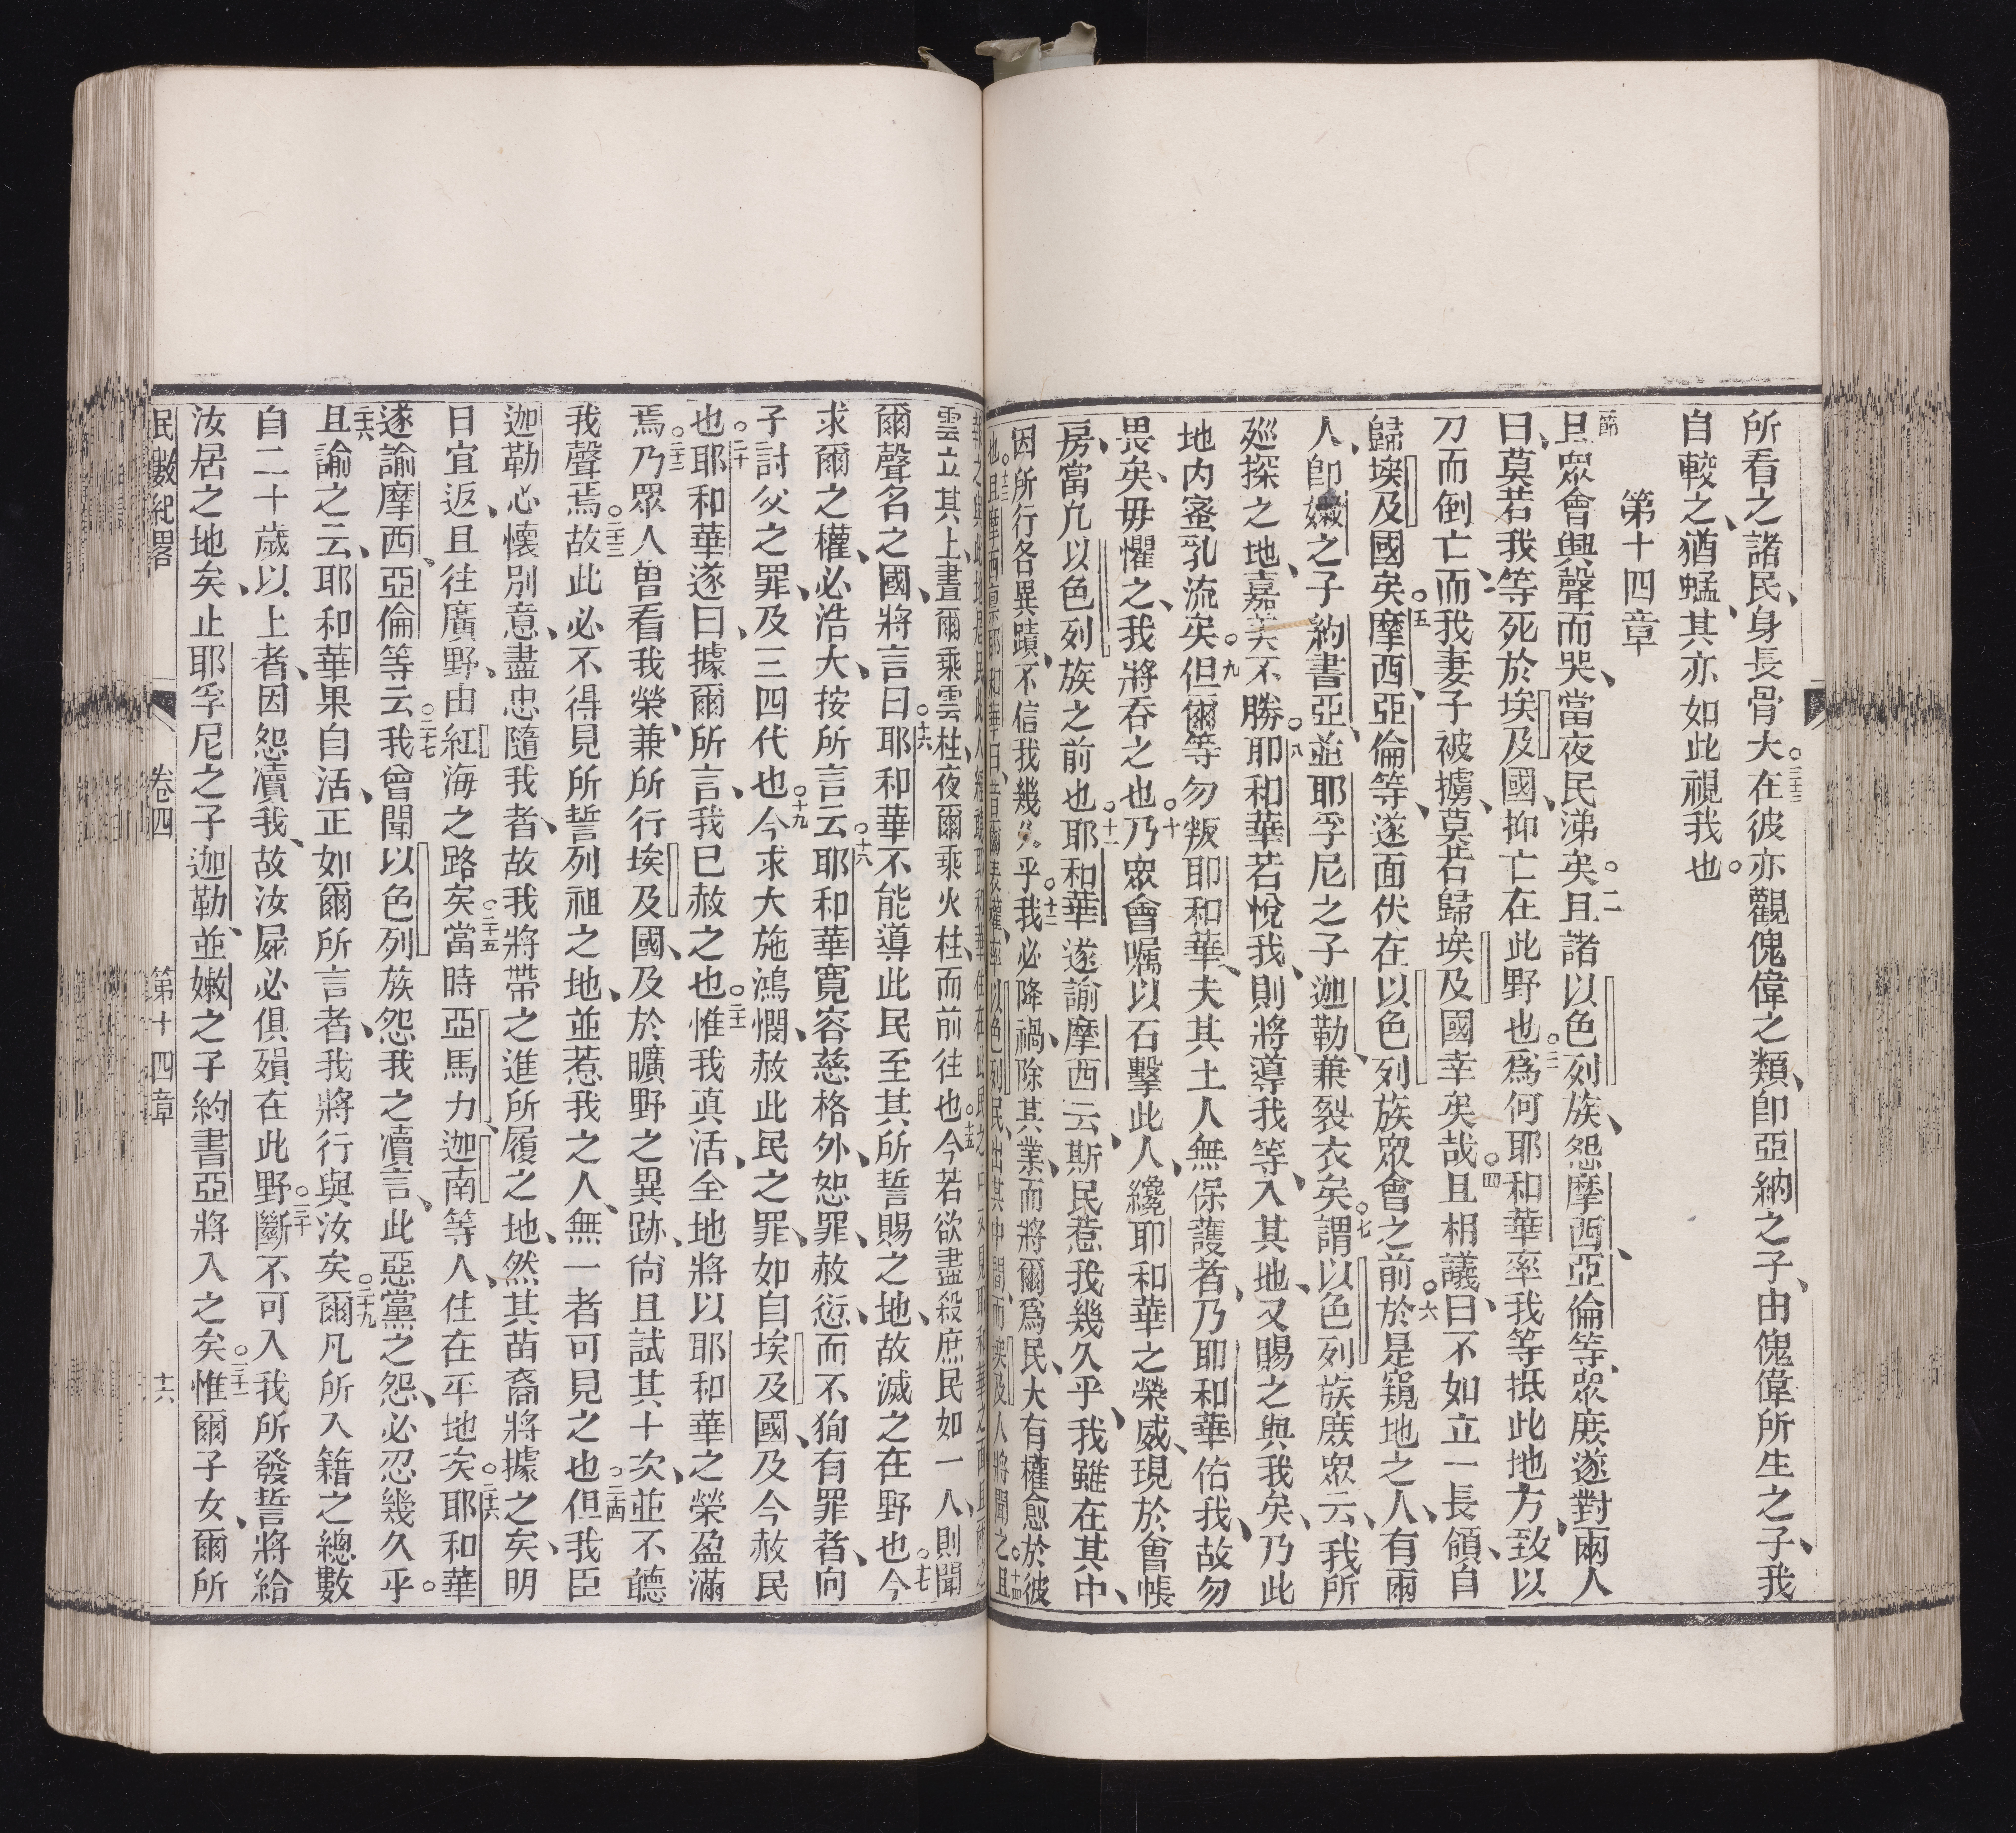 所看之諸民、身長骨大。三十三在彼亦觀傀偉之類、即亞納之子、由傀偉所生之子、我
自較之、猶蜢、其亦如此視我也。
第十四章
一節且眾會興聲而哭、當夜民涕矣。二且諸以色列族、怨摩西、亞倫等、眾庶遂對兩人
曰、莫若我等死於埃及國、抑亡在此野也。三為何耶和華率我等抵此地方、致以
刀而倒亡、而我妻子被擄、莫若歸埃及國幸矣哉。四且相議曰、不如立一長領、自
歸埃及國矣。五摩西、亞倫等、遂面伏在以色列族眾會之前。六於是窺地之人、有兩
人、即嫩之子約書亞、並耶孚尼之子迦勒、兼裂衣矣。七謂以色列族庶眾云、我所
巡探之地、嘉美不勝。八耶和華若悅我、則將導我等、入其地、又賜之與我矣、乃此
地內蜜乳流矣。九但爾等勿叛耶和華、夫其土人無保護者、乃耶和華佑我、故勿
畏矣、毋懼之、我將吞之也。十乃眾會囑以石擊此人、纔耶和華之榮威、現於會帳
房、當凡以色列族之前也。十一耶和華遂諭摩西云、斯民惹我幾久乎、我雖在其中、
因所行各異蹟、不信我幾久乎。十二我必降禍、除其業、而將爾為民、大有權愈於彼
也。十三且摩西稟耶和華曰、昔爾表權、率以色列民、出其中間、而埃及人將聞之。十四且
雲立其上、晝爾乘雲柱、夜爾乘火柱、而前往也。十五今若欲盡殺庶民如一人、則聞
爾聲名之國、將言曰。十六耶和華不能導此民至其所誓賜之地、故滅之在野也。十七今
求爾之權、必浩大、按所言云。十八耶和華寬容慈格外、恕罪、赦愆、而不狥有罪者、向
子討父之罪、及三四代也。十九今求大施鴻憫、赦此民之罪、如自埃及國、及今赦民
也。二十耶和華遂曰、據爾所言、我已赦之也。二十一惟我真活、全地將以耶和華之榮盈滿
焉。二十二乃眾人曾看我榮、兼所行埃及國、及於曠野之異跡、尚且試其十次、並不聽
我聲焉。二十三故此必不得見所誓列祖之地、並惹我之人、無一者可見之也。二十四但我臣
迦勒、心懷別意、盡忠隨我者、故我將帶之進所履之地、然其苗裔將據之矣、明
日宜返、且往廣野、由紅海之路矣。二十五當時亞馬力、迦南等人、住在平地矣。二十六耶和華
遂諭摩西、亞倫等云。二十七我曾聞以色列族怨我之瀆言、此惡黨之怨、必忍幾久乎。
二十八且諭之云、耶和華果自活、正如爾所言者、我將行與汝矣。二十九爾凡所入籍之總數
自二十歲以上者、因怨瀆我、故汝屍必俱殞在此野。三十斷不可入我所發誓將給
汝居之地矣、止耶孚尼之子迦勒、並嫩之子約書亞、將入之矣。三十一惟爾子女、爾所
民數紀畧 卷四 第十四章 十六